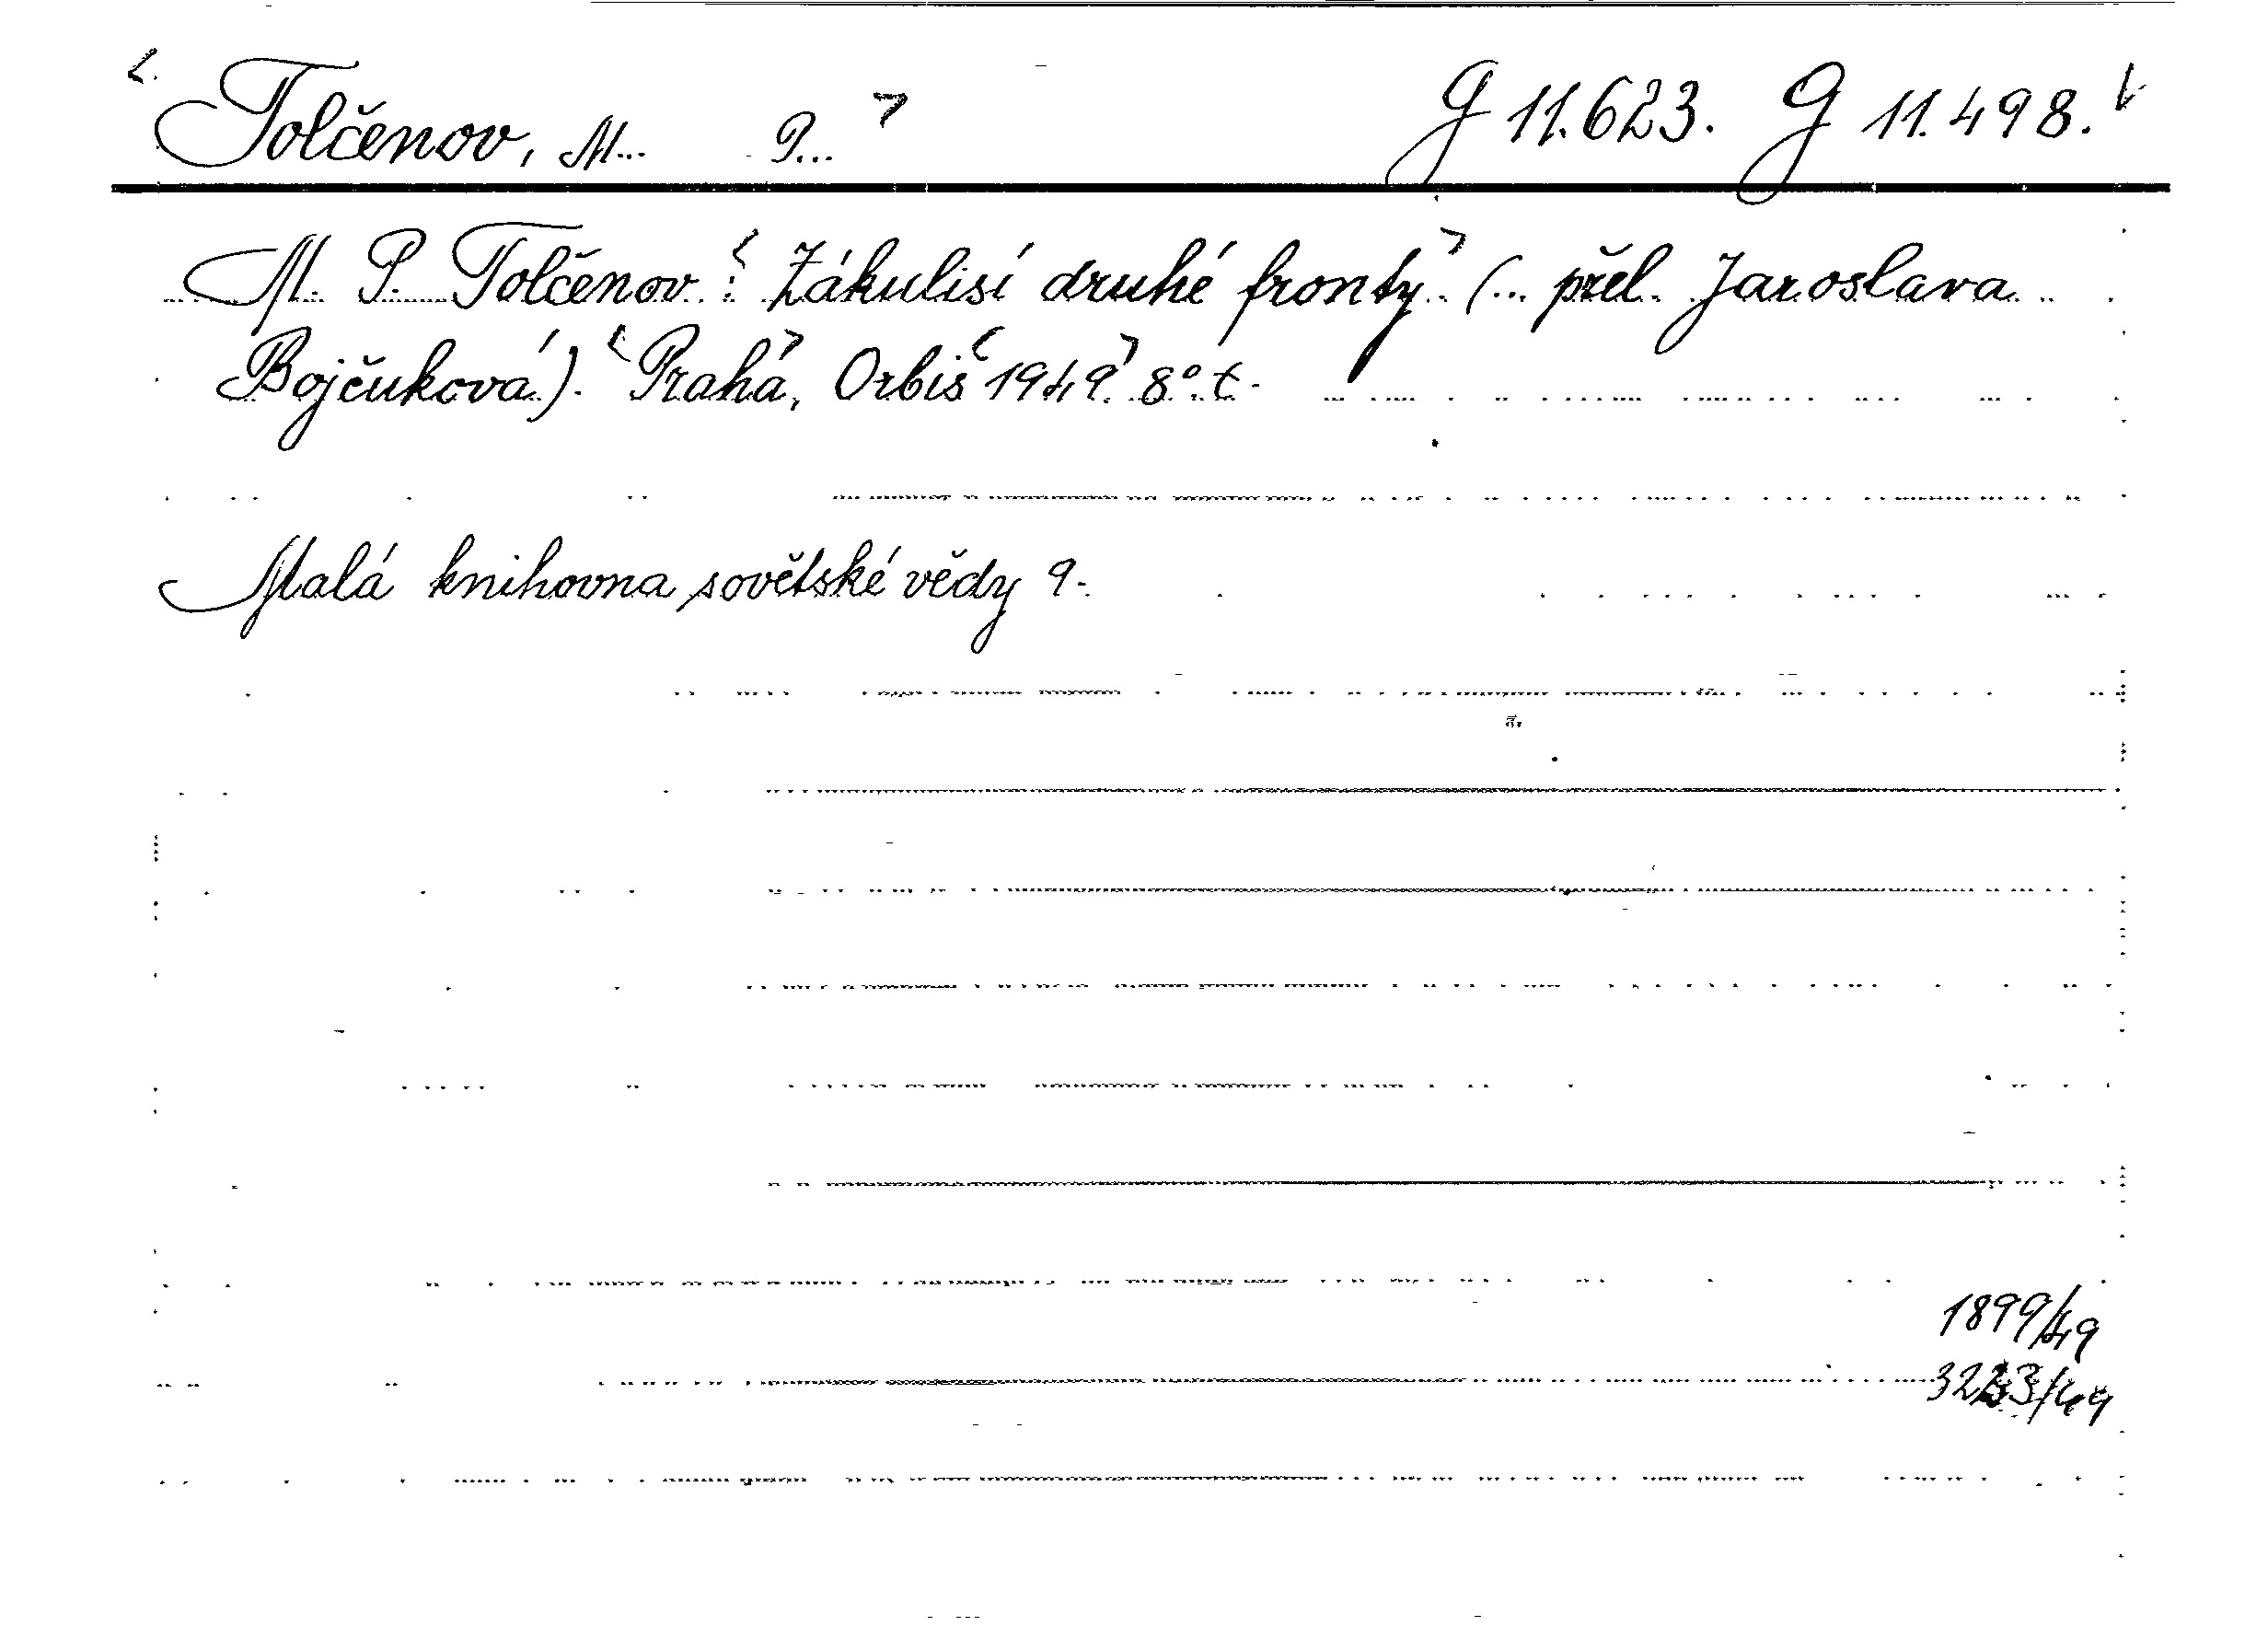 Tolčenov, M... P... G 11.623. G 11.498.
M. P. Tolčenov: Zákulisí druhé fronty. (... přel. Jaroslava
Bojčuková). Praha, Orbis 1949. 8° t.
Malá knihovna sovětské vědy 9.
1899/49